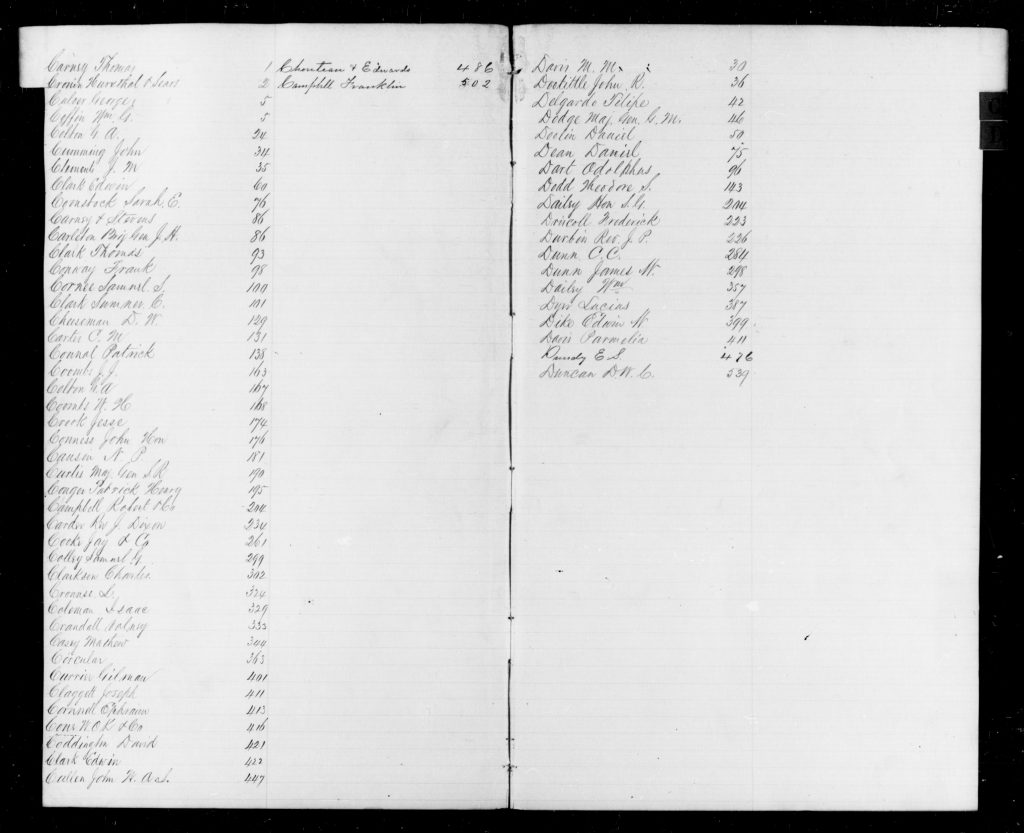 Carney Thomas 1
Cronin Hurxthal & Sears 2
Culver George 5
Coffin Wm. G. 5
Colton G. A. 24
Cumming John 34
Clements J. M 35
Clark Edwin 60
Comstock Sarah E. 76
Carney & Stevens 86
Carleton Brig Gen J. H. 86
Clark Thomas 93
Conway Frank 98
Cornee Samuel S. 100
Clark Sumner E. 101
Cheeseman D. W. 129
Carter C. M 131
Connal Patrick 138
Coombs J. J. 163
Colton G. A 167
Coombs W. H 168
Crook Jesse 174
Conness John Hon 176
Causen N. P. 181
Curtis Maj Gen S R 190
Conger Patrick Henry 195
Campbell Robert & Co 204
Carder Rev J. Dixon 234
Cooke Jay & Co 261
Colley Samuel G. 299
Clarkson Charles 302
Crounse L. 324
Coleman Isaac 329
Crandall Volney 333
Casey Mathew 344
Circular 363
Currier Gilman 401
Claggett Joseph 411
Cornell Ephraim 413
Cone W. C. K & Co 416
Coddington David 421
Clark Edwin 422
Cullen John W. Ast. 447
Chouteau & Edwards 486
Campbell Franklin 502
Davis M. M. 30
Doolittle John R. 36
Delgardo Felipe 42
Dodge Maj. Gen. G. M. 46
Devlin Daniel 50
Dean Daniel 75
Dart Adolphus 96
Dodd Theodore S. 143
Dailey Hon S. G. 204
Driscoll Frederick 223
Durbin Rev. J. P. 226
Dunn C. C. 284
Dunn James W. 298
Dailey Wm 357
Dyer Lucius 387
Dike Edwin W. 399
Davis Parmelia 411
Dundy E. S. 476
Duncan D W. C. 539